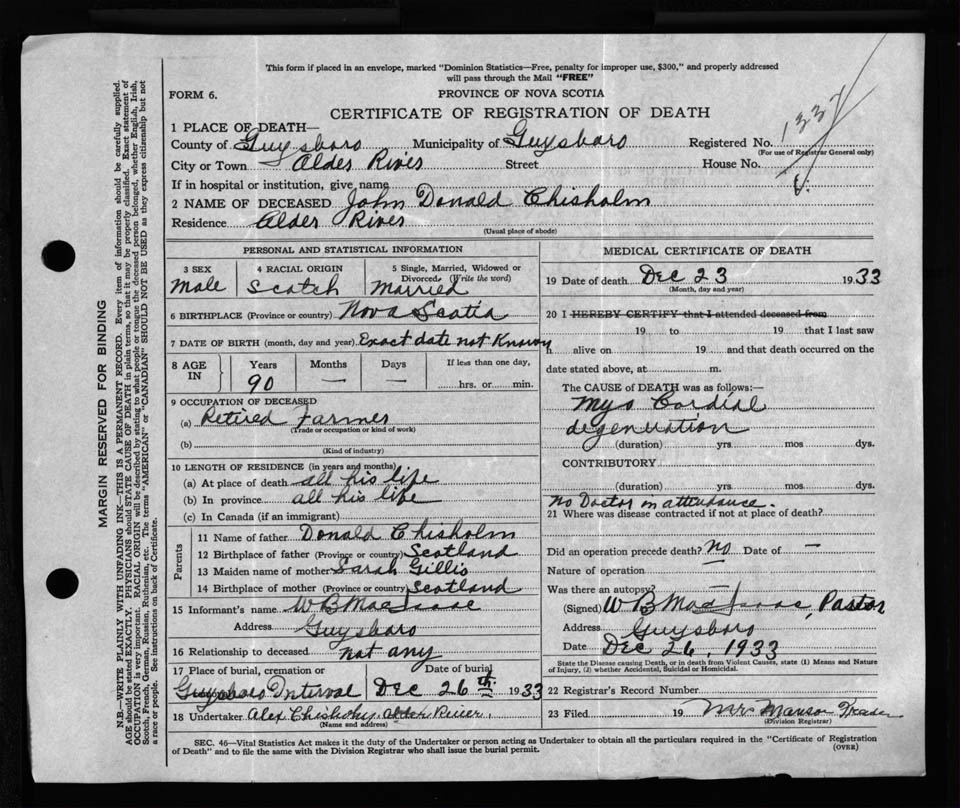 This form if placed in an envelope, marked "Dominion Statistics—Free, penalty for improper use, $300," and properly addressed
will pass through the Mail "FREE"
FORM 6.
PROVINCE OF NOVA SCOTIA
CERTIFICATE OF REGISTRATION OF DEATH
1 PLACE OF DEATH—
County of Guysboro Municipality of Guysboro Registered No. 1337
(For use of Registrar General only)
City or Town Alder River Street House No.
If in hospital or institution, give name
2 NAME OF DECEASED John Donald Chisholm
Residence Alder River
(Usual place of abode)
PERSONAL AND STATISTICAL INFORMATION
3 SEX
Male
4 RACIAL ORIGIN
Scotch
5 Single, Married, Widowed or
Divorced. (Write the word)
Married
6 BIRTHPLACE (Province or country) Nova Scotia
7 DATE OF BIRTH (month, day and year) Exact date not Known
8 AGE IN
Years
90
Months
—
Days
—
If less than one day,
hrs. or min.
9 OCCUPATION OF DECEASED
(a) Retired Farmer
(Trade or occupation or kind of work)
(b)
(Kind of industry)
10 LENGTH OF RESIDENCE (in years and months)
(a) At place of death all his life
(b) In province all his life
(c) In Canada (if an immigrant)
Parents
11 Name of father Donald Chisholm
12 Birthplace of father (Province or country) Scotland
13 Maiden name of mother Sarah Gillis
14 Birthplace of mother (Province or country) Scotland
15 Informant's name W B MacIsaac
Address Guysboro
16 Relationship to deceased not any
17 Place of burial, cremation or Date of burial
Guysboro Interval Dec 26th 1933
18 Undertaker Alex Chisholm Alder River.
(Name and address)
MEDICAL CERTIFICATE OF DEATH
19 Date of death Dec 23 1933
(Month, day and year)
20 I HEREBY CERTIFY that I attended deceased from
19 to 19 that I last saw
h alive on 19 and that death occurred on the
date stated above, at m.
The CAUSE of DEATH was as follows:—
Myo Cordial
degeneration
(duration) yrs. mos. dys.
CONTRIBUTORY
(duration) yrs. mos. dys.
No Doctor in attendance.
21 Where was disease contracted if not at place of death?
Did an operation precede death? No Date of —
Nature of operation —
Was there an autopsy? —
(Signed) W B MacIsaac, Pastor
Address Guysboro
Date Dec 26, 1933
State the Disease causing Death, or in death from Violent Causes, state (1) Means and Nature
of Injury, (2) whether Accidental, Suicidal or Homicidal.
22 Registrar's Record Number
23 Filed 19 Mrs Manson
(Division Registrar)
SEC. 46—Vital Statistics Act makes it the duty of the Undertaker or person acting as Undertaker to obtain all the particulars required in the "Certificate of Registration
of Death" and to file the same with the Division Registrar who shall issue the burial permit.
(OVER)
MARGIN RESERVED FOR BINDING
N.B.—WRITE PLAINLY WITH UNFADING INK—THIS IS A PERMANENT RECORD. Every item of information should be carefully supplied.
AGE should be stated EXACTLY. PHYSICIANS should STATE CAUSE OF DEATH in plain terms, so that it may be properly classified. Exact statement of
OCCUPATION is very important. RACIAL ORIGIN will be described by stating to what people or tongue the deceased person belonged, whether English, Irish,
Scotch, French, German, Russian, Ruthenian, etc. The terms "AMERICAN" or "CANADIAN" SHOULD NOT BE USED as they express citizenship but not
a race or people. See instructions on back of Certificate.